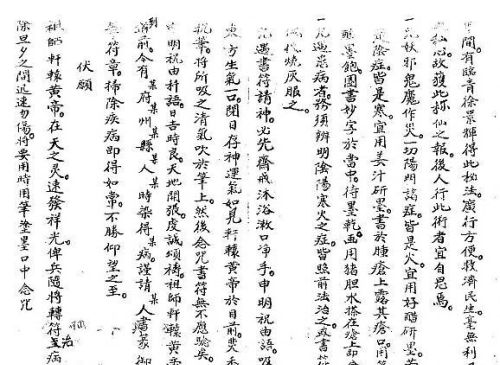 里間。有臨青徐景輝得此秘法。廣行方便。救濟民生。毫無利
己私心。故獲此極仙之報。後人行此術者。宜自思焉。
一凡妖邪鬼魔作災。一切陽門諸症。皆是火。宜用好醋研墨。
陰症。皆是寒。宜用姜汁研墨。書於腫瘡上。露其瘡口。用筆
墨飽圈書妙字於當中。待墨乾。再用猪胆水搽在瘡上
燒灰服之。
一凡遇眾病者。務須辨明陰陽寒火之症。皆照前法治之
凡遇書符請神。必先齋戒沐浴。漱口淨手。申明祝由語。吸
東方生氣一口。閉目存神運氣。如見軒轅黃帝於目前。
執筆。將所吸之清氣吹於筆上。然後念咒書符。無不應驗矣。
明祝由科語。日吉時良。天地開張。虔誠頌禱。祖師軒轅黃
前。今有某府某州某縣某人某時染得某病。謹請
符章。掃除疾病。即得如常。不勝仰望之至
伏願
祖師軒轅黃帝。在天之灵。速發祥光。俾兵隨將轉。符至病
除。旦夕之間。迅速勿傷。將要用時。用筆塗墨。口中念咒